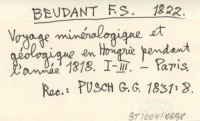 BEUDANT F.S. 1822.
Voyage minéralogique et
géologique en Hongrie pendant
l'année 1818. I-III. - Paris
Rec.: PUSCH G.G. 1831: 8.